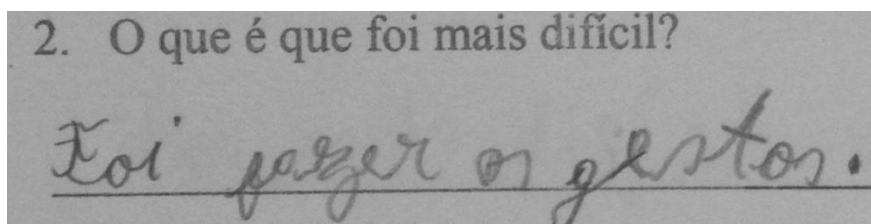 2. O que é que foi mais difícil?
Foi fazer os gestos.